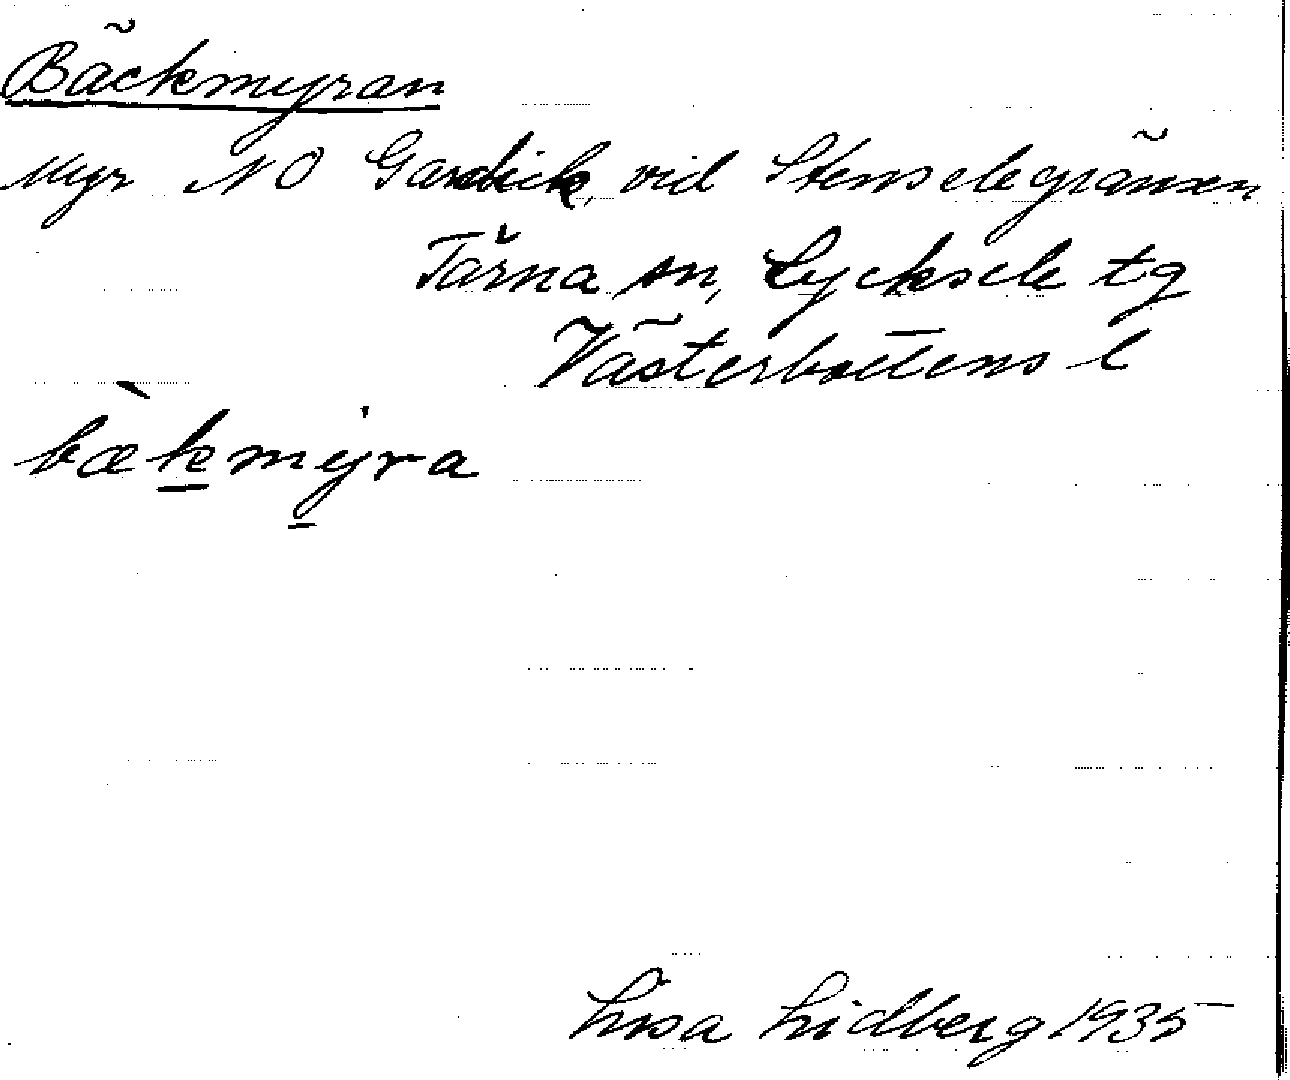 Bäckmyran
Myr NO Gardick, vid Stenselegränsen
Tärna sn, Lycksele tg
Västerbottens l
bæ̀kmýra
Lisa Lidberg 1935